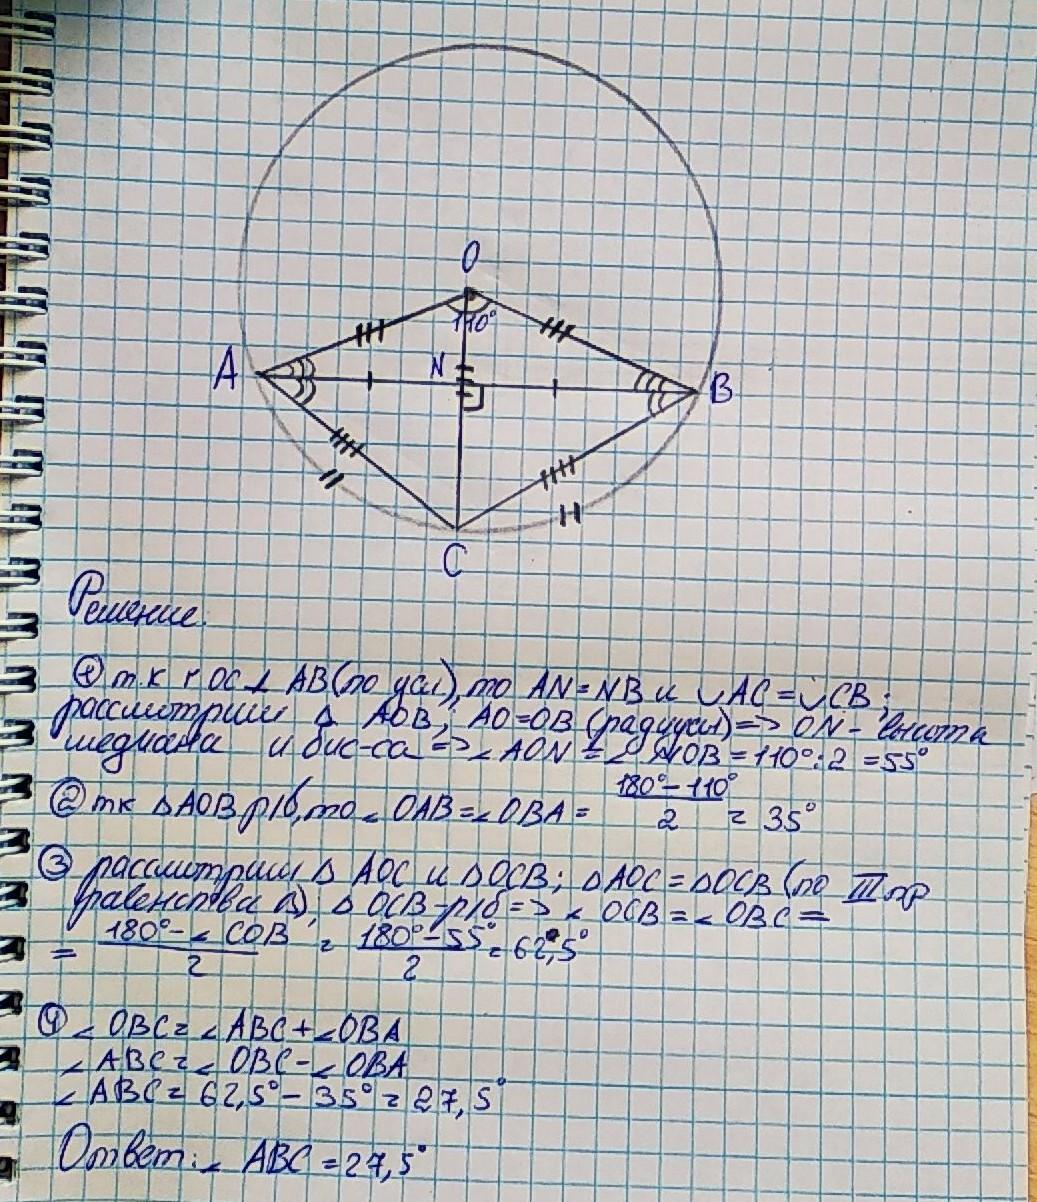 O
110°
N
A
B
C
Решение:
① т.к r OC⊥ AB(по усл), то AN=NB и ∪AC=∪CB;
рассмотрим △ AOB; AO=OB (радиусы)=> ON- высота
медиана и бис-са => ∠AON = ∠NOB = 110°:2 = 55°
② тк △AOB р/б, то ∠OAB=∠OBA = (180°-110°)/2 = 35°
③ рассмотрим △ AOC и △OCB; △AOC=△OCB (по III пр
равенства △); △ OCB-р/б => ∠ OCB=∠OBC=
= (180°-∠COB)/2 = (180°-55°)/2 = 62,5°
④ ∠OBC=∠ABC+∠OBA
∠ABC=∠OBC-∠OBA
∠ABC=62,5°-35°=27,5°
Ответ: ∠ ABC=27,5°